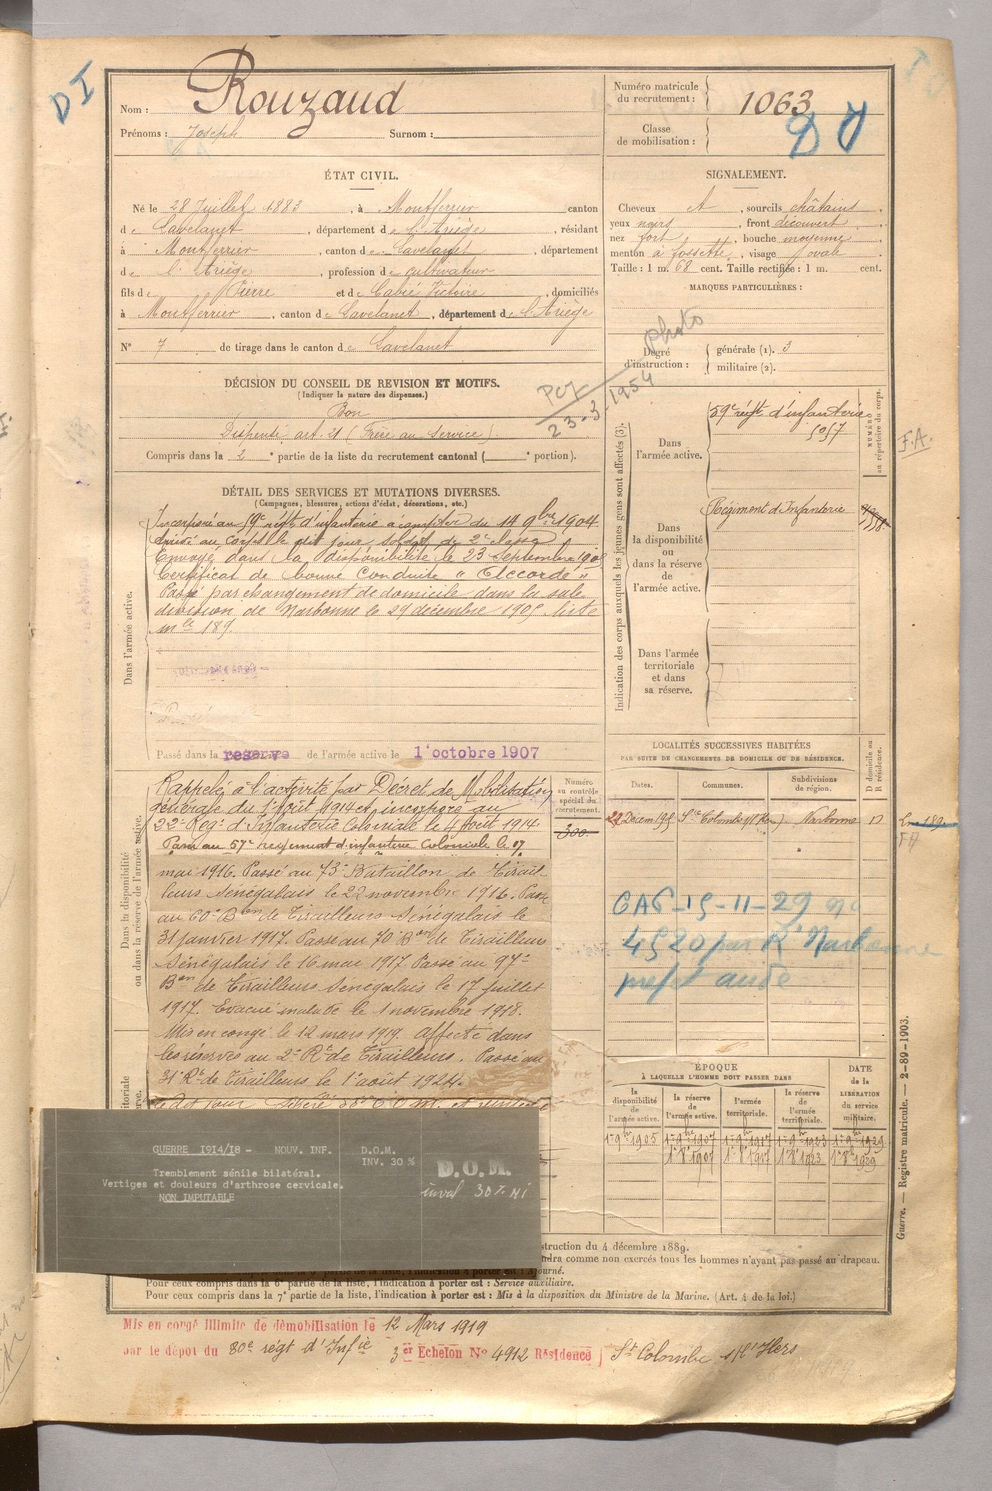 DI
Nom : Rouzaud
Prénoms : Joseph Surnom :
Numéro matricule du recrutement : 1063
Classe de mobilisation :
ÉTAT CIVIL.
Né le 28 Juillet 1883, à Montferrier canton
de Lavelanet, département de l'Ariège, résidant
à Montferrier, canton de Lavelanet, département
de l'Ariège, profession de cultivateur
fils de Pierre et de Cabié Victoire, domiciliés
à Montferrier, canton de Lavelanet, département de l'Ariège
N° 7 de tirage dans le canton de Lavelanet
SIGNALEMENT.
Cheveux et, sourcils châtains
yeux noirs, front découvert
nez fort, bouche moyenne
menton à fossette, visage ovale
Taille : 1 m. 68 cent. Taille rectifiée : 1 m. cent.
MARQUES PARTICULIÈRES :
photo
23-3-1954
Degré d'instruction : générale (1). 3
militaire (2).
DÉCISION DU CONSEIL DE REVISION ET MOTIFS.
(Indiquer la nature des dispenses.)
Bon
Dispensé art. 21 (Frère au service)
Compris dans la 2e partie de la liste du recrutement cantonal ( e portion).
DÉTAIL DES SERVICES ET MUTATIONS DIVERSES.
(Campagnes, blessures, actions d'éclat, décorations, etc.)
Dans l'armée active.
Incorporé au 59e régt d'infanterie à compter du 14 9bre 1904
Arrivé au corps le dit jour, soldat de 2e classe
Envoyé dans la disponibilité le 23 Septembre 1905
Certificat de bonne conduite "Accordé"
Passé par changement de domicile dans la subdivision de Narbonne le 29 décembre 1905. liste
mle 189.
Passé dans la reserve de l'armée active le 1 octobre 1907
Indication des corps auxquels les jeunes gens sont affectés (3).
Dans l'armée active.
59e régt d'infanterie
5057
NUMÉRO au répertoire du corps.
F.A.
Dans la disponibilité ou dans la réserve de l'armée active.
Régiment d'Infanterie
Dans l'armée territoriale et dans sa réserve.
Dans la disponibilité ou dans la réserve de l'armée active.
Rappelé à l'activité par Décret de Mobilisation
Générale du 1er Août 1914 et incorporé au
22e Régt d'Infanterie Coloniale le 4 août 1914.
Passé au 57e régiment d'infanterie Coloniale le 17
mai 1916. Passé au 73e Bataillon de Tirail-
leurs Sénégalais le 22 novembre 1916. Passé
au 60e Bon de Tirailleurs Sénégalais le
31 janvier 1917. Passé au 70e Bon de Tirailleurs
Sénégalais le 16 mai 1917 Passé au 97e
Bon de Tirailleurs Sénégalais le 17 juillet
1917. Evacué malade le 1 novembre 1918.
Mis en congé le 12 mars 1919. Affecté dans
les réserves au 2e Rt de Tirailleurs. Passé au
31e Rt de Tirailleurs le 1er août 1924.
Numéro au contrôle spécial du recrutement.
300
LOCALITÉS SUCCESSIVES HABITÉES
PAR SUITE DE CHANGEMENTS DE DOMICILE OU DE RÉSIDENCE.
Dates. Communes. Subdivisions de région. D domicile ou R résidence.
29 Décem 1905 Ste Colombe s/l'Hers Narbonne D
189
FA
CAC-15-11-29
4520 par Rt Narbonne
prefet aude
ÉPOQUE
À LAQUELLE L'HOMME DOIT PASSER DANS
DATE de la LIBÉRATION du service militaire.
la disponibilité de l'armée active. la réserve de l'armée active. l'armée territoriale. la réserve de l'armée territoriale.
1er 9bre 1905 1er 9bre 1907 1er 9bre 1917 1er 9bre 1923 1er 9bre 1929
1er 8bre 1907 1er 8bre 1917 1er 8bre 1923 1er 8bre 1929
GUERRE 1914/18 - NOUV. INF. D.O.M.
INV. 30 %
Tremblement sénile bilatéral.
Vertiges et douleurs d'arthrose cervicale.
NON IMPUTABLE
D.O.M.
inval 30% NI
struction du 4 décembre 1889.
dra comme non exercés tous les hommes n'ayant pas passé au drapeau.
Pour ceux compris dans la 6e partie de la liste, l'indication à porter est : Service auxiliaire.
Pour ceux compris dans la 7e partie de la liste, l'indication à porter est : Mis à la disposition du Ministre de la Marine. (Art. 4 de la loi.)
Guerre. — Registre matricule. — 2-89-1903.
Mis en congé illimité de démobilisation le 12 Mars 1919
par le dépôt du 80e régt d'Infie 3er Echelon No 4912 Résidence St Colombe s/l'Hers